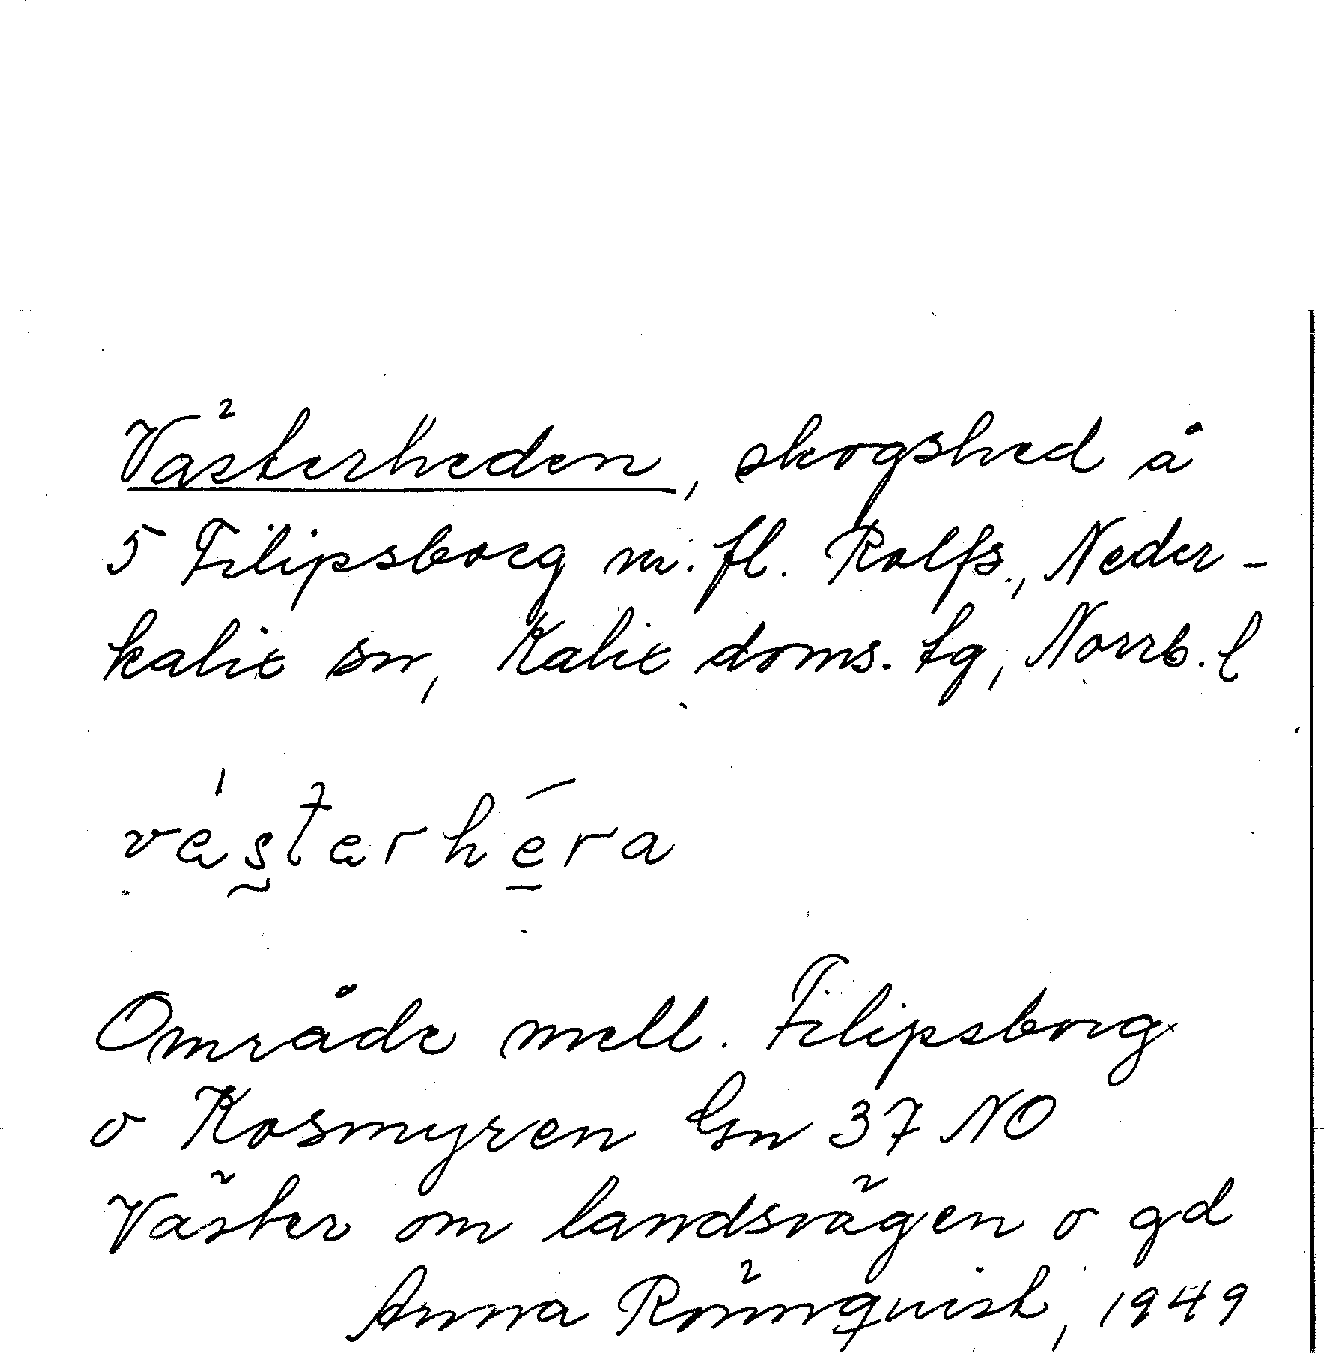 Västerheden, skogshed å
5 Filipsborg m. fl. Rolfs., Neder-
kalix sn, Kalix doms. tg, Norrb. l
Område mell. Filipsborg
o Kosmyren Gn 37 NO
Väster om landsvägen o gd
Anna Rönnquist, 1949